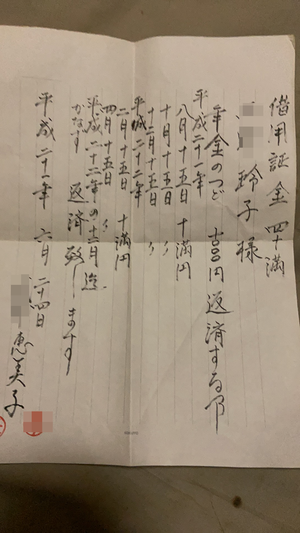 借用証金 四十満
玲子様
年金のつど 十万円返済する事
平成二十一年
八月十五日 十満円
十月十五日 〃
十二月十五日 〃
平成二十二年
二月十五日 十満円
四月十五日 〃
平成二十二年の十二月迄
かなず 返済致します
平成二十一年 六月 二十四日
恵美子